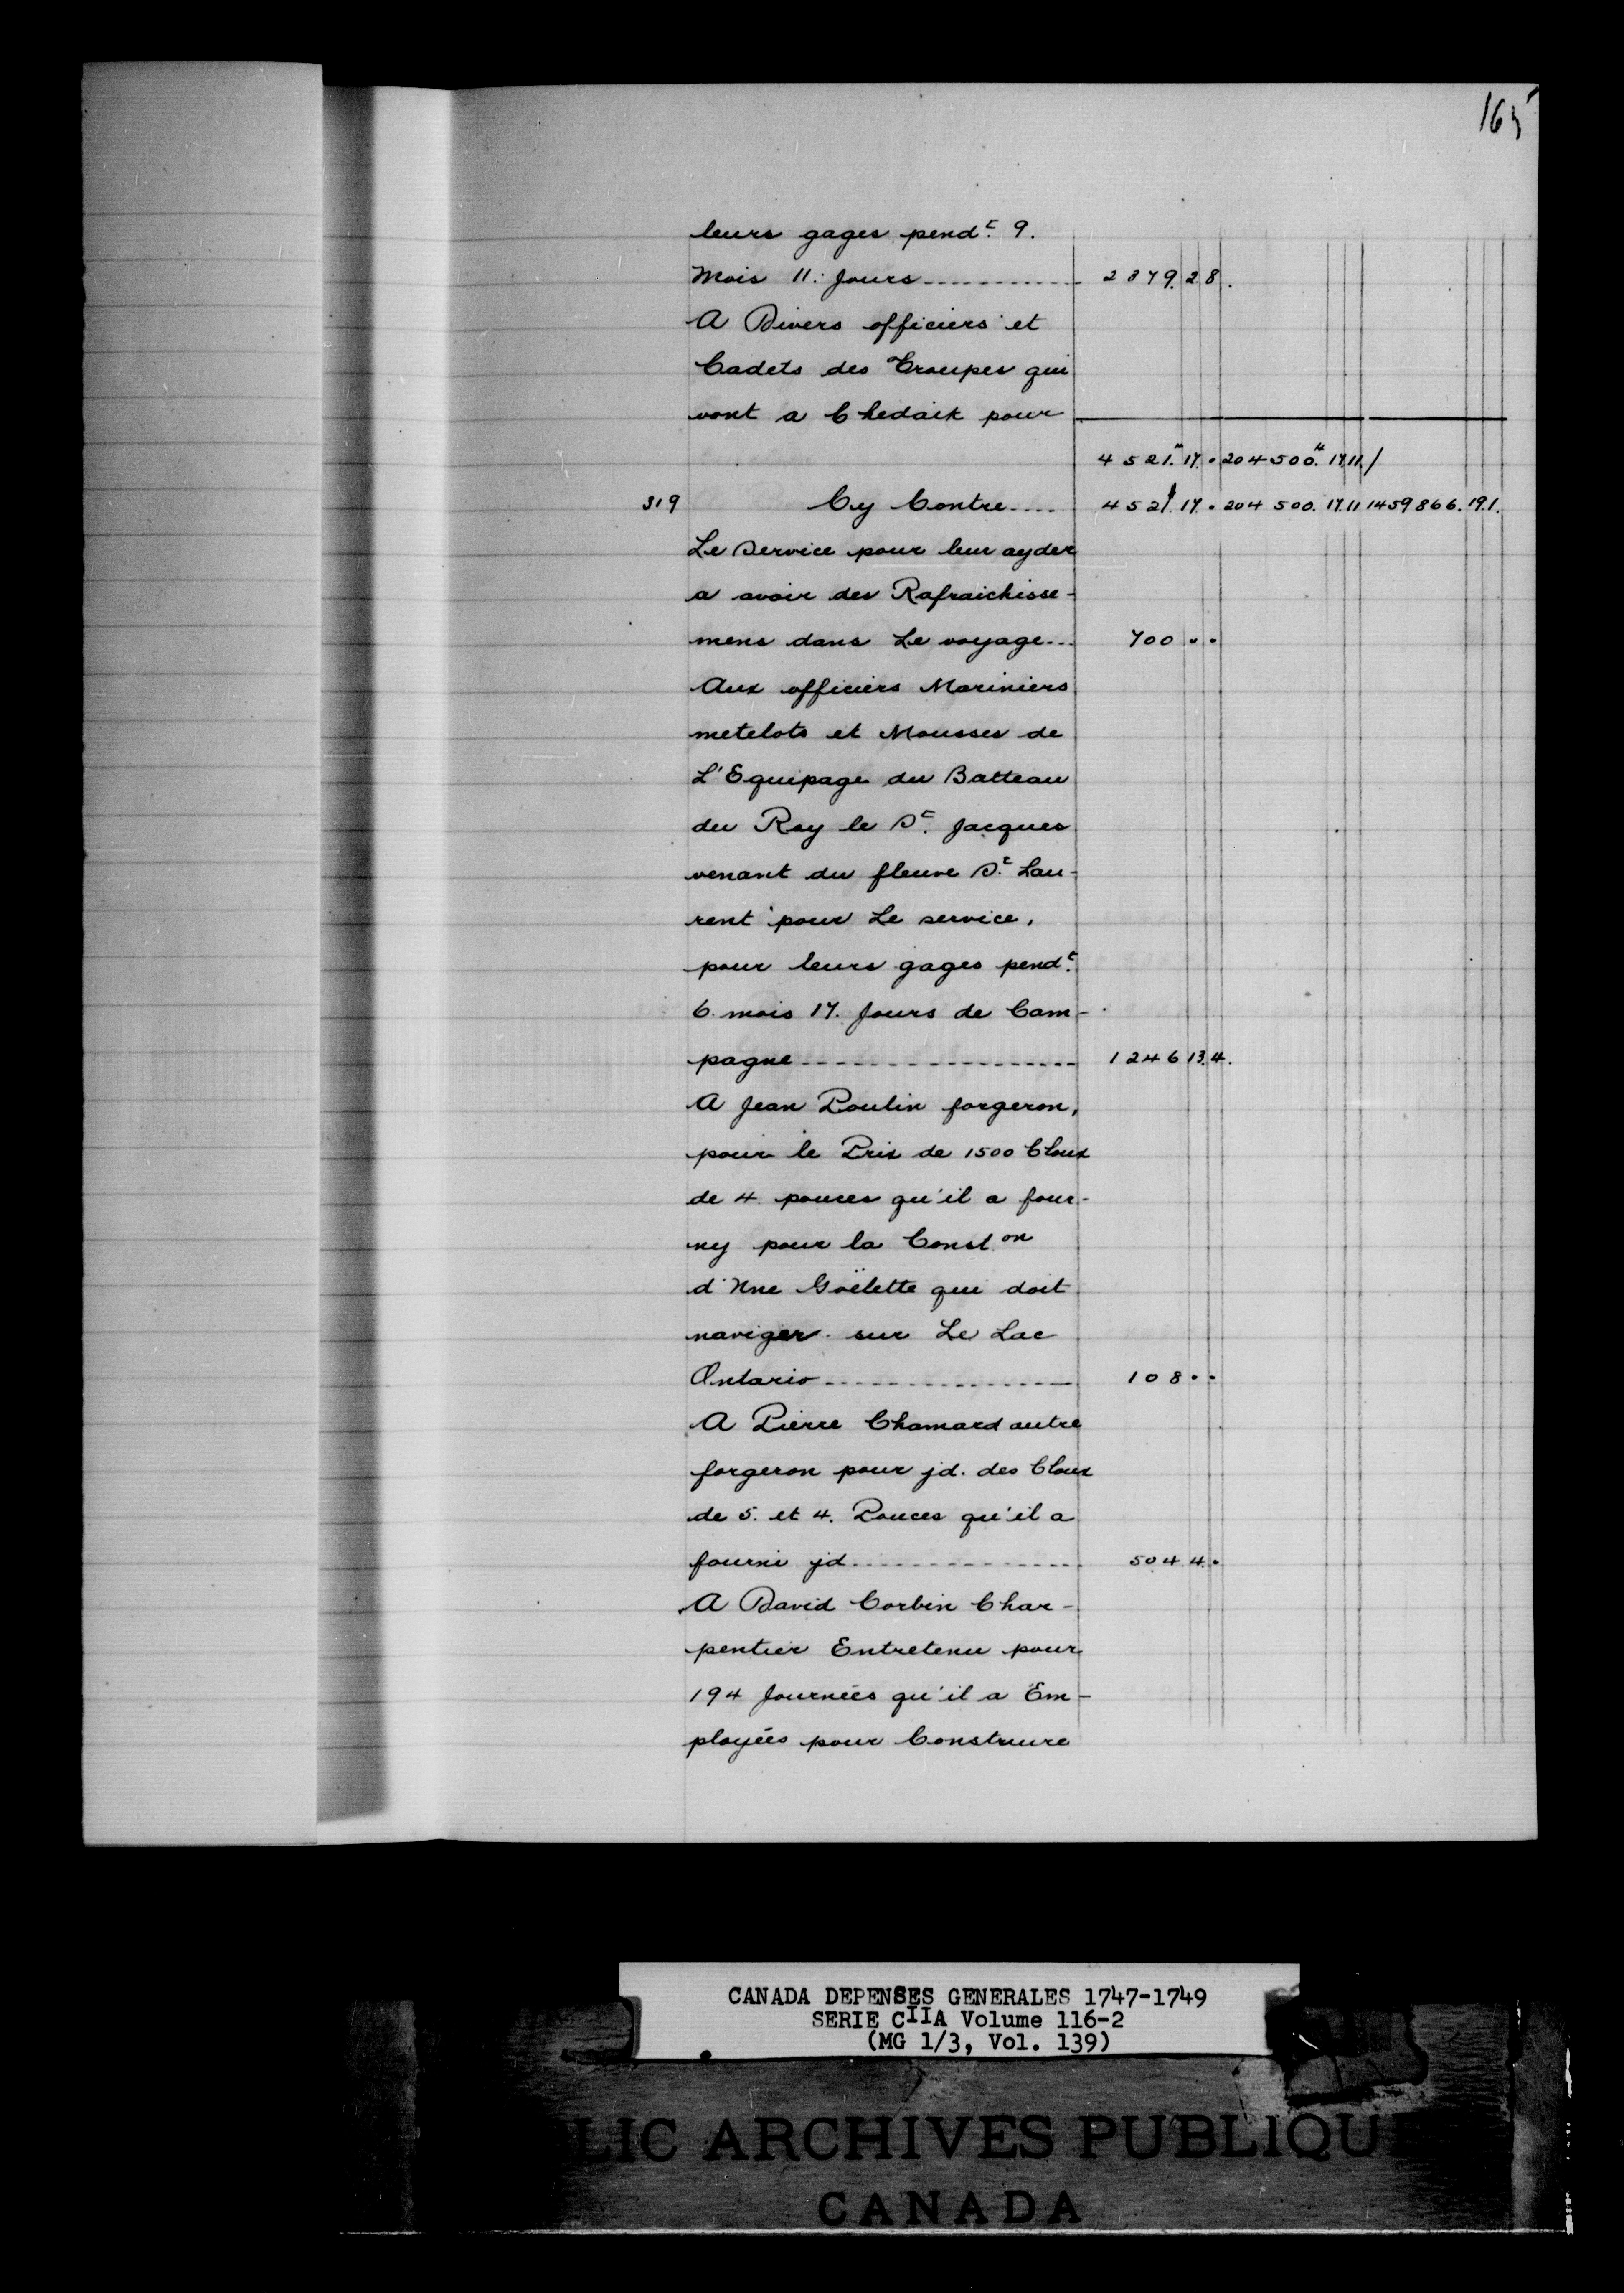 165
leurs gages pendt. 9.
Mois 11. Jours ............ 2379. 2 8.
A Divers officiers et
Cadets des Troupes qui
vont a Chedaik pour
4521.# 17. • 204500.# 17. 11 /
319 Cy Contre .... 4521 17. • 204 500. 17. 11 1459866. 19. 1.
Le service pour leur ayder
a avoir des Rafraichisse-
mens dans Le voyage ... 700 • •
Aux officiers Mariniers
metelots et Mousses de
L'Equipage du Batteau
du Roy le St. Jacques
venant du fleuve St. Lau-
rent pour Le service,
pour leurs gages pendt.
6. mois 17. Jours de Cam-
pagne .................. 1246 13. 4.
A Jean Poulin forgeron,
pour le Prix de 1500 Cloux
de 4 pouces qu'il a four-
ny pour la Const.on
d'Une Goëlette qui doit
naviger sur Le Lac
Ontario ................ 108 • •
A Pierre Chamard autre
forgeron pour jd. des Cloux
de 5. et 4. Pouces qu'il a
fourni jd .............. 504 4. •
A David Corbin Char-
pentier Entretenu pour
194 Journées qu'il a Em-
ployées pour Construire
CANADA DEPENSES GENERALES 1747-1749
SERIE CIIA Volume 116-2
(MG 1/3, Vol. 139)
LIC ARCHIVES PUBLIQU
CANADA